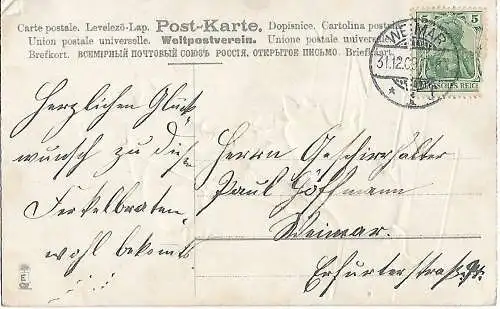 Carte postale. Levelező-Lap. Post-Karte. Dopisnice. Cartolina postale.
Union postale universelle. Weltpostverein. Unione postale universale.
Brefkort. ВСЕМІРНЫЙ ПОЧТОВЫЙ СОЮЗЪ РОССІЯ. ОТКРЫТОЕ ПИСЬМО. Briefkaart.
5 5
DEUTSCHES REICH
WEIMAR
31.12.08
Herzlichen Glück-
wunsch zu diesem
Ferkelbraten.
wohl bekomts
Herrn Geschirrhalter
Paul Hoffmann
Weimar.
Erfurterstraße